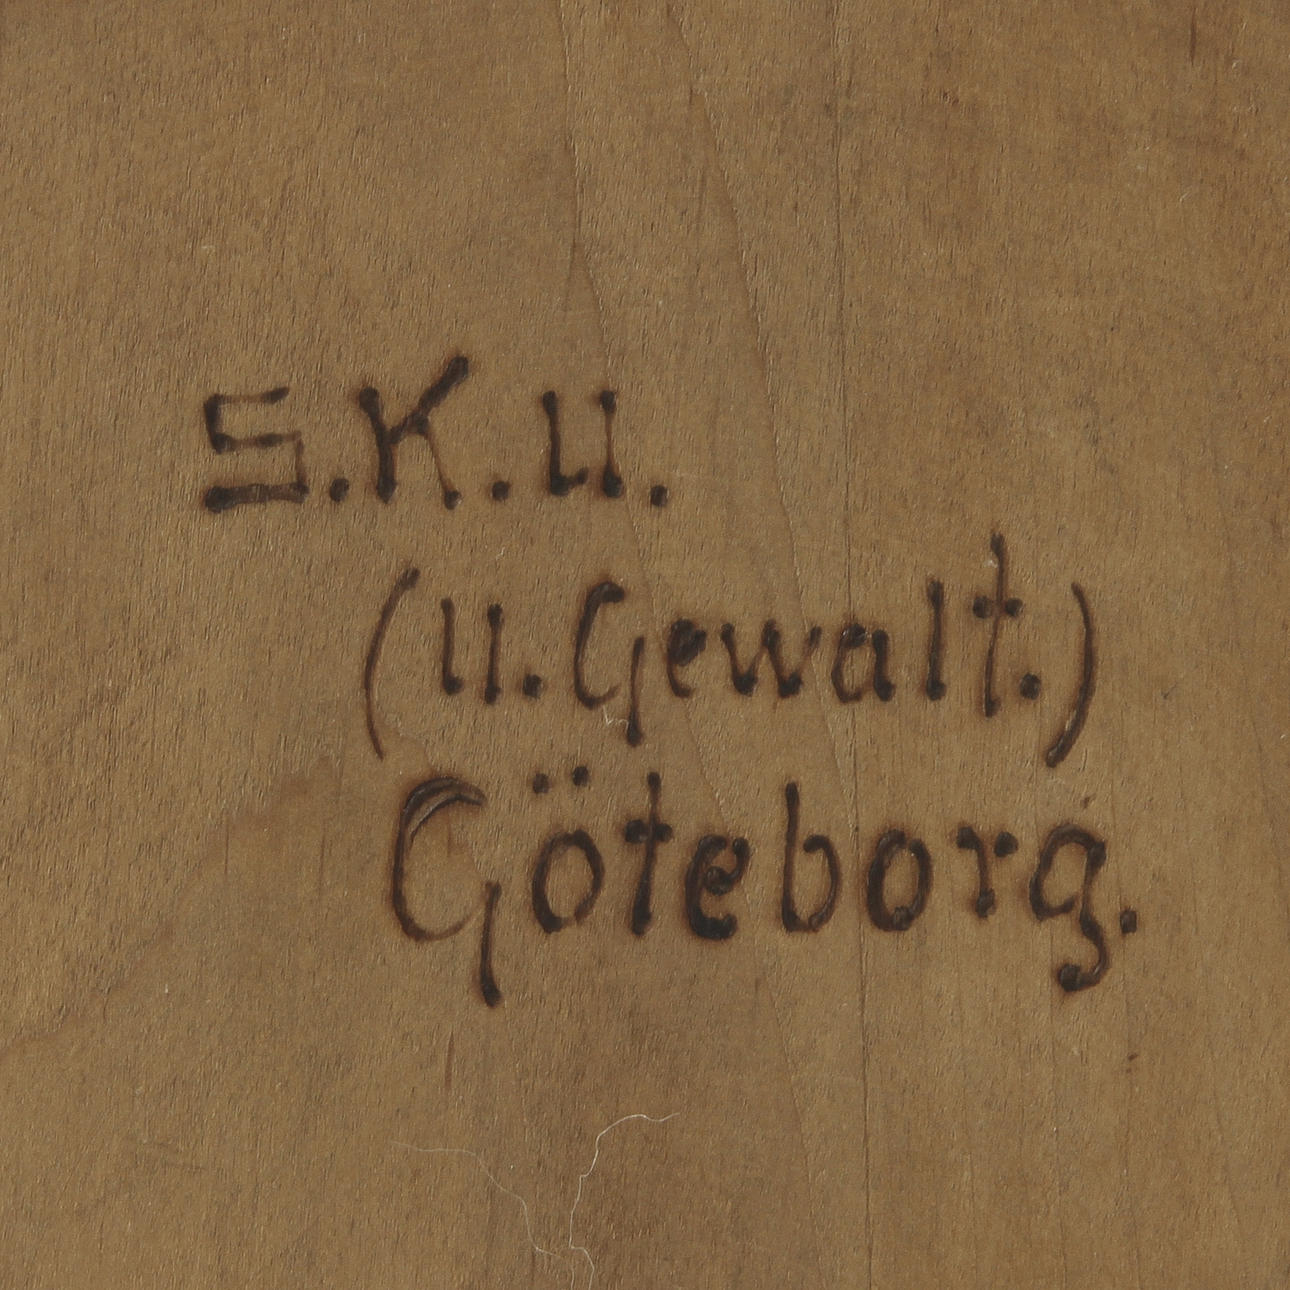 S.K.U.
(U. Gewalt.)
Göteborg.